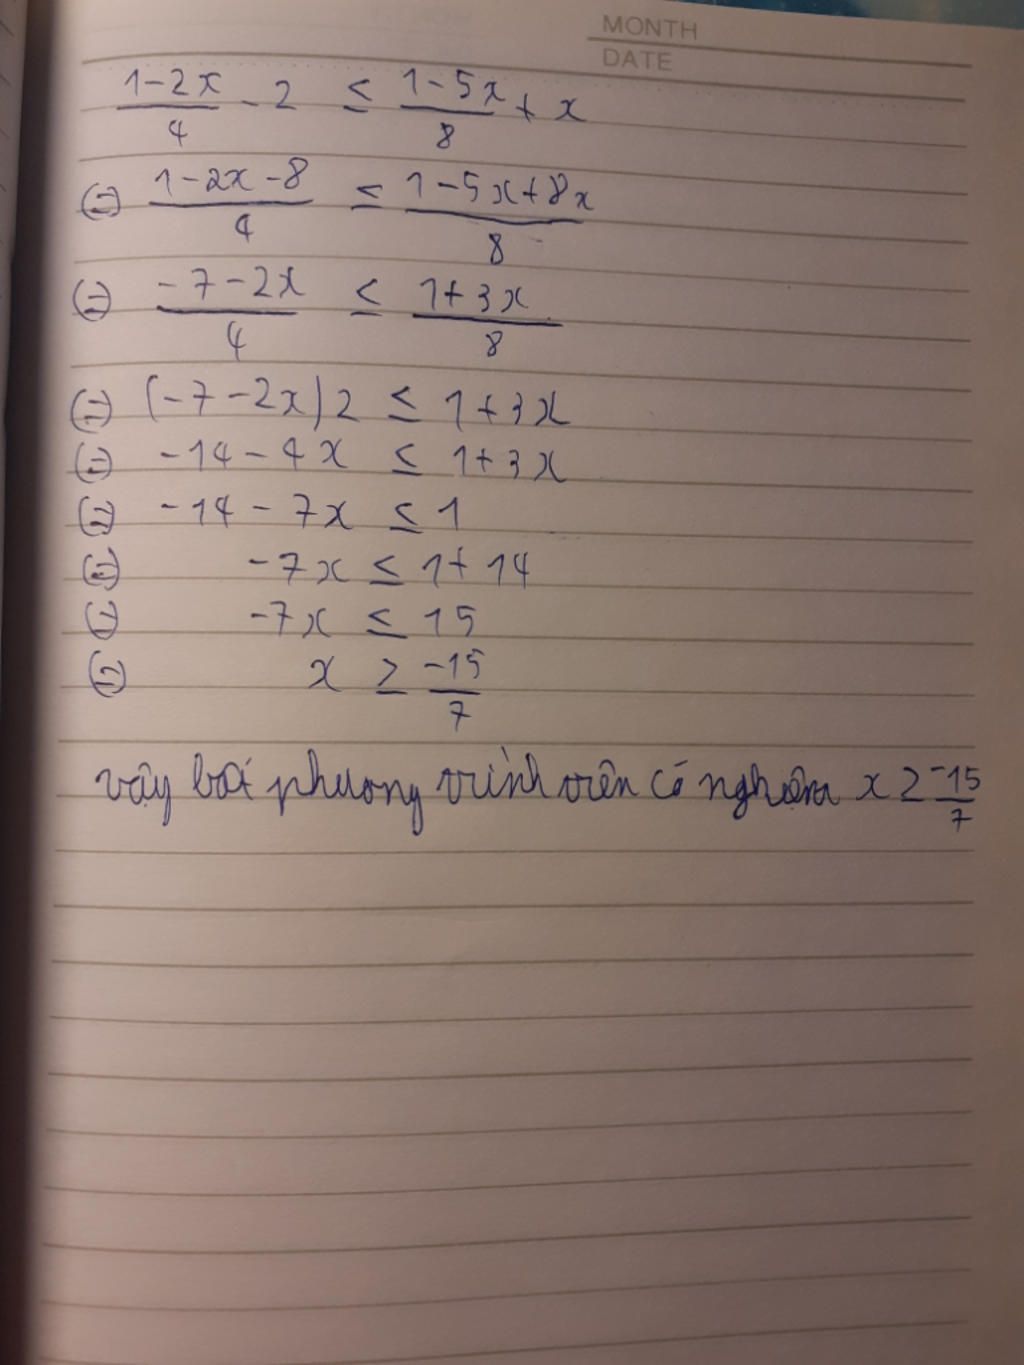 MONTH
DATE
1-2x/4 - 2 ≤ 1-5x/8 + x
(=) 1-2x-8/4 ≤ 1-5x+8x/8
(=) -7-2x/4 ≤ 1+3x/8
(=) (-7-2x)2 ≤ 1+3x
(=) -14-4x ≤ 1+3x
(=) -14-7x ≤ 1
(=) -7x ≤ 1+14
(=) -7x ≤ 15
(=) x ≥ -15/7
vậy bất phương trình trên có nghiệm x ≥ -15/7